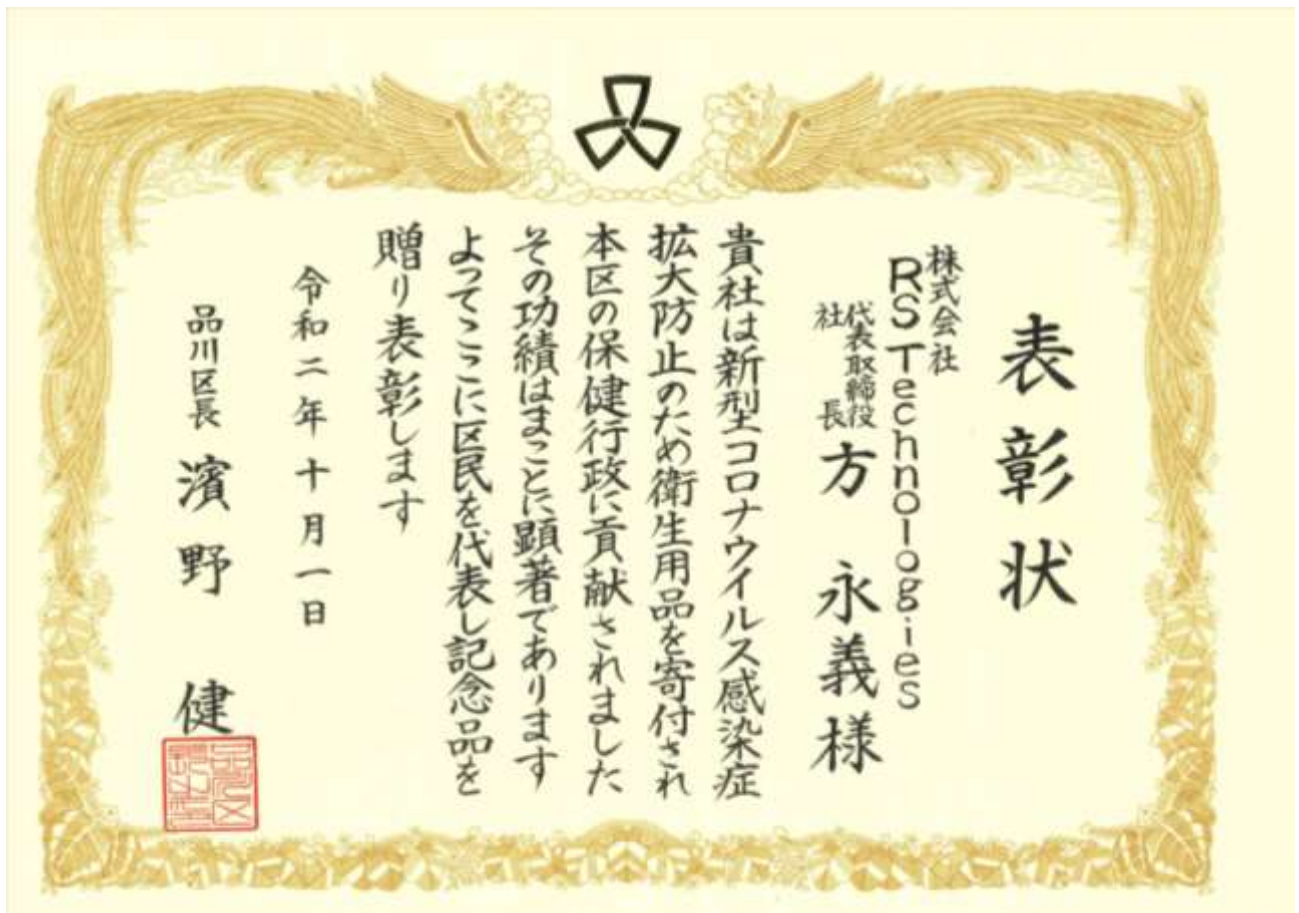 表彰状
株式会社
RS Technologies
代表取締役
社長
方 永義様
貴社は新型コロナウイルス感染症
拡大防止のため衛生用品を寄付され
本区の保健行政に貢献されました
その功績はまことに顕著であります
よってここに区民を代表し記念品を
贈り表彰します
令和二年十月一日
品川区長 濱野 健